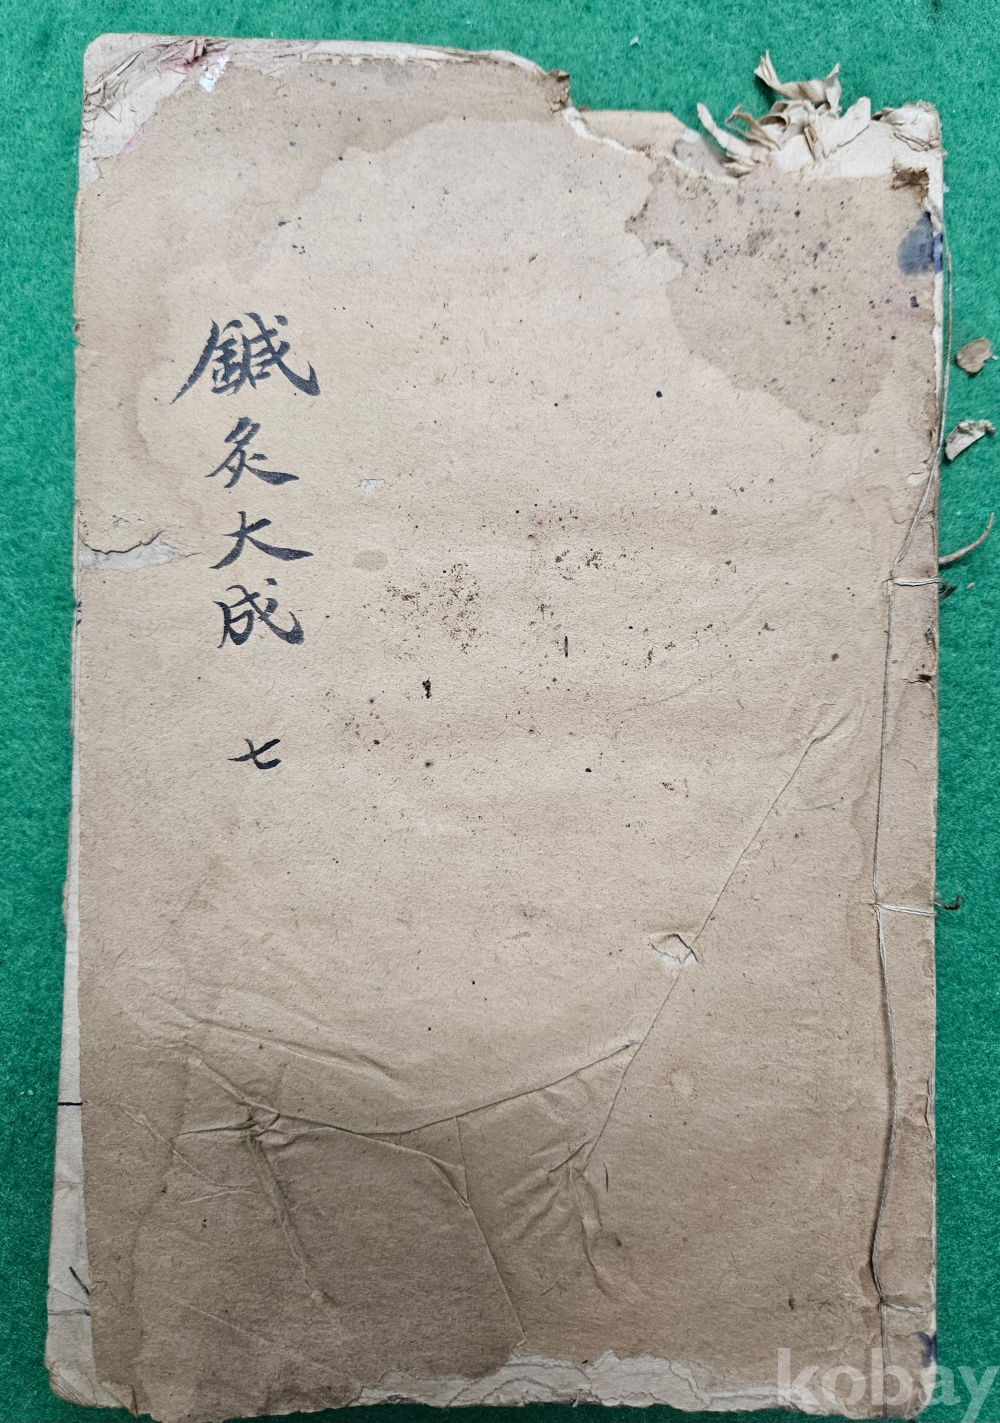 鍼灸大成 七
kobay